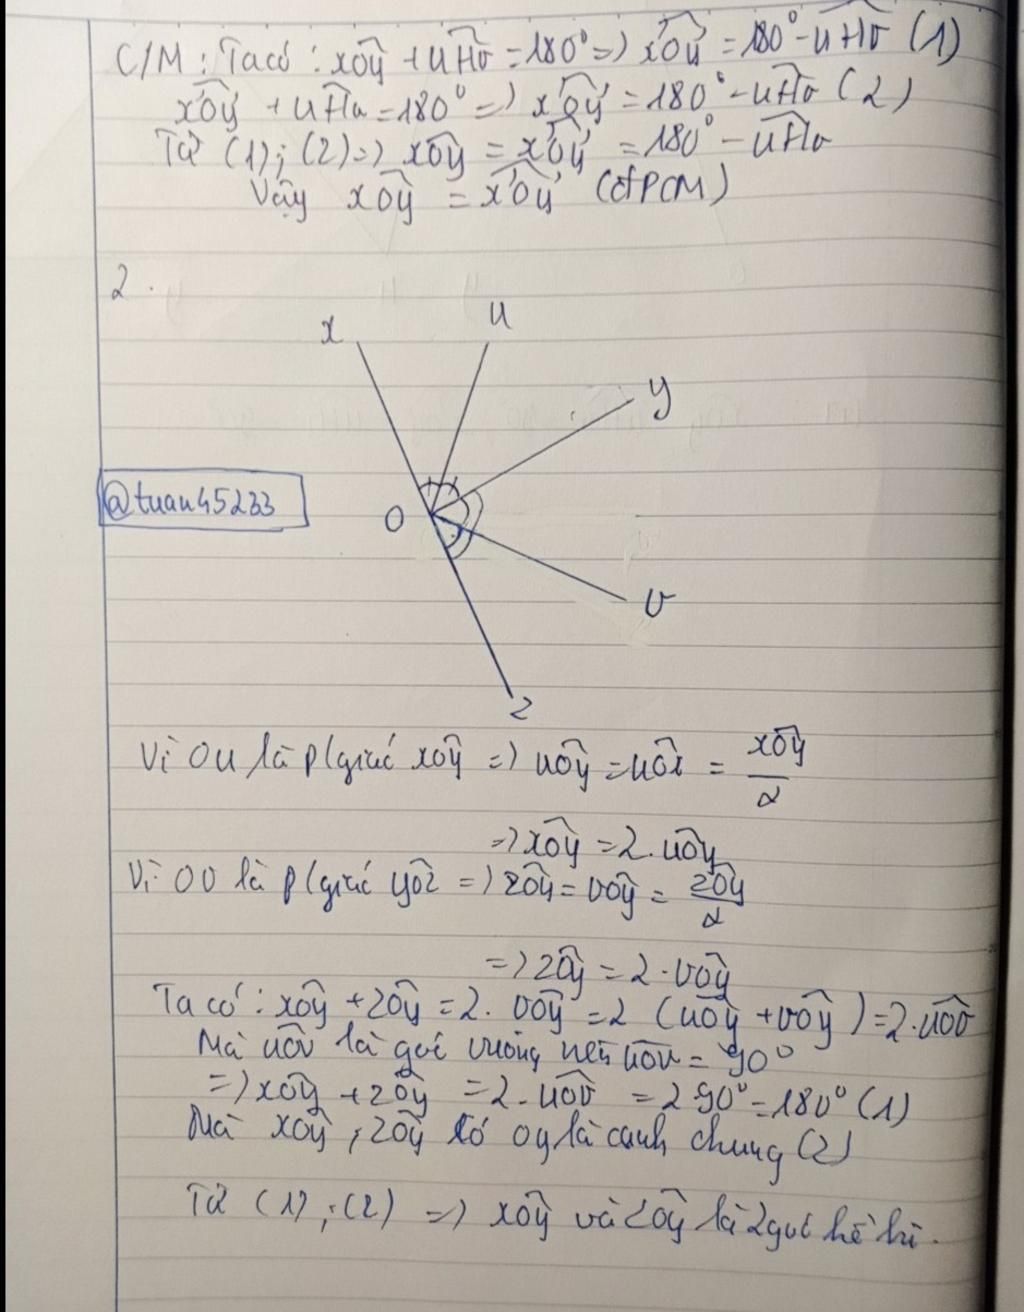 C/M: Ta có: xÔy + uHv = 180° => x'Ôy' = 180° - uHv (1)
x'Ôy' + uHv = 180° => x'Ôy' = 180° - uHv (2)
Từ (1); (2) => xÔy = x'Ôy' = 180° - uHv
Vậy xÔy = x'Ôy' (đfPCM)
2.
x
u
y
@tuan45233
O
v
z
Vì Ou là p/giác xÔy => uÔy = uÔx = xÔy / 2
=> xÔy = 2.uÔy
Vì Ov là p/giác yÔz => zÔy = vÔy = zÔy / 2
=> zÔy = 2.vÔy
Ta có: xÔy + zÔy = 2. vÔy = 2 (uÔy + vÔy) = 2.uÔv
Mà uÔv là góc vuông nên uÔv = 90°
=> xÔy + zÔy = 2.uÔv = 2 90° = 180° (1)
Mà xÔy, zÔy có Oy là cạnh chung (2)
Từ (1); (2) => xÔy và zÔy là 2 góc kề bù.